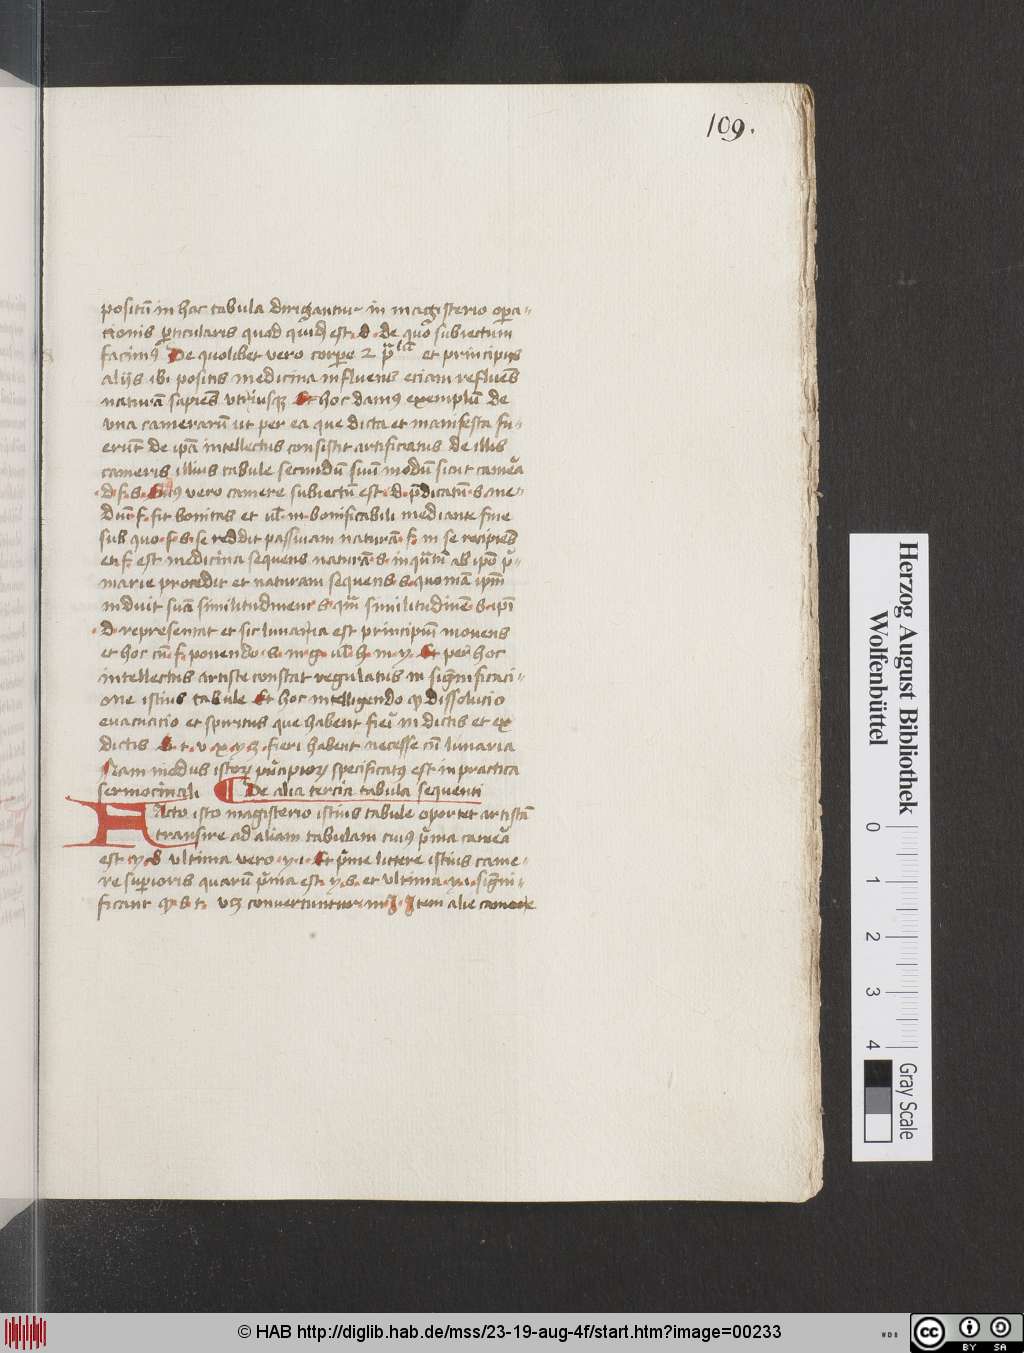 109.
positū in hac tabula dirigantur in magisterio opera-
tionis perticularis quod quid est · d · de quo subiectum
facimꝰ De quolibet vero corpore et principijs
alijs ibi positis medicina influens eciam refluēs
naturā sapiēs utriusqꝫ Et hoc damꝰ exemplū de
una camerarū ut per ea que dicta et manifesta fu-
erūt de ipā intellectus consistit artificiatus de illis
cameris illius tabule secundū suū modū sicut camēa
· d · f · s · vero camere subiectū est · d · p̄dicatū · s · me-
diū · f · fit bonitas et ul̄ · m · bonificabili mediante fine
sub quo · f · s · se reddit passiuam naturā · f · in se recipiēs
et · f · est medicina sequens naturā · s · inqūtū ab ipo p̄-
marie procedit et naturam sequens · s · quoniā ipm̄
induit suā similitudinem · s · qm̄ similitudinē · s · ipī
· d · representat et sic lunaria est principiū mouens
et hoc cū · f · ponendo · s · m · g · ul̄ · h · m · y · Et per hoc
intellectus artiste constat regulatus in significaci-
one istius tabule Et hoc intelligendo ꝙ dissolucio
euacuacio et spiritus que habent fieri in dictis et ex
dictis · s · t · v · x · y · z · fieri habent necesse cū lunaria
Nam modus istoꝝ principioꝝ specificatꝰ est in practica
sermocinali De alia tercia tabula sequenti
Facto isto magisterio istius tabule oportet artistā
transire ad aliam tabulam cuiꝰ p̄ma camēa
est ultima vero · y · Et p̄me littere istius came-
re superioris quarū p̄ma est · y · s · et ultima · signi-
ficant · s · t · convertuntur in · I · Item alie camere
Herzog August Bibliothek
Wolfenbüttel
0 1 2 3 4
Gray Scale
© HAB http://diglib.hab.de/mss/23-19-aug-4f/start.htm?image=00233
WDB
cc BY SA